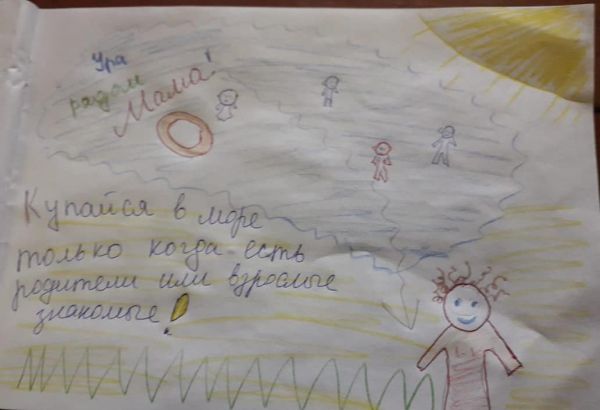 Ура
рядом
Мама!
Купайся в море
только когда есть
родители или взрослые
знакомые!